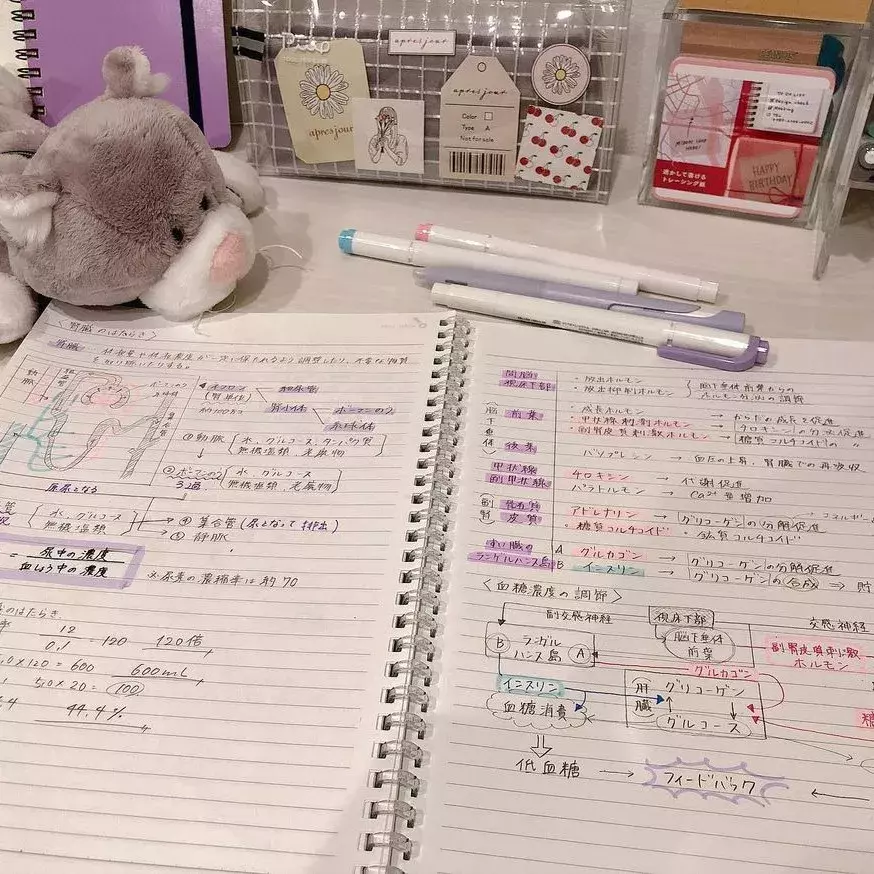 Piko
apres jour
apres jour
apres jour
Color
Type A
Not for sale
TO DO LIST
HAPPY
BIRTHDAY
透かして書ける
トレーシング紙
〈腎臓のはたらき〉
腎臓
動脈
ネフロン
(腎単位)
腎小体
ボーマンのう
糸球体
① 動脈 水、グルコース、タンパク質
無機塩類、老廃物
② ボーマンのう 水、グルコース
無機塩類、老廃物
原尿となる
水、グルコース
無機塩類
④ 集合管(尿となって排出)
静脈
= 尿中の濃度
血しょう中の濃度
※尿素の濃縮率は約70
のはたらき
12
0.1 = 120 120倍
×120 = 600 600mL
5.0×20 = 100
44.4%
間脳
視床下部
・放出ホルモン
・放出抑制ホルモン
脳下垂体前葉からの
ホルモン分泌の調節
脳下垂体
前葉
・成長ホルモン → からだの成長を促進
・甲状腺刺激ホルモン → チロキシンの分泌促進
・副腎皮質刺激ホルモン → 糖質コルチコイドの 〃
後葉
バソプレシン → 血圧の上昇、腎臓での再吸収
甲状腺 チロキシン → 代謝促進
副甲状腺 パラトルモン → Ca²⁺量増加
副腎
髄質 アドレナリン → グリコーゲンの分解促進
皮質 ・糖質コルチコイド ・鉱質コルチコイド
すい臓の
ランゲルハンス島
A グルカゴン → グリコーゲンの分解促進
B インスリン → グリコーゲンの合成 ⇒ 貯
〈血糖濃度の調節〉
副交感神経 視床下部 交感神経
B ランゲル
ハンス島 A
脳下垂体
前葉
副腎皮質刺激
ホルモン
グルカゴン
インスリン
肝臓
グリコーゲン
血糖消費
グルコース
糖
低血糖 → フィードバック